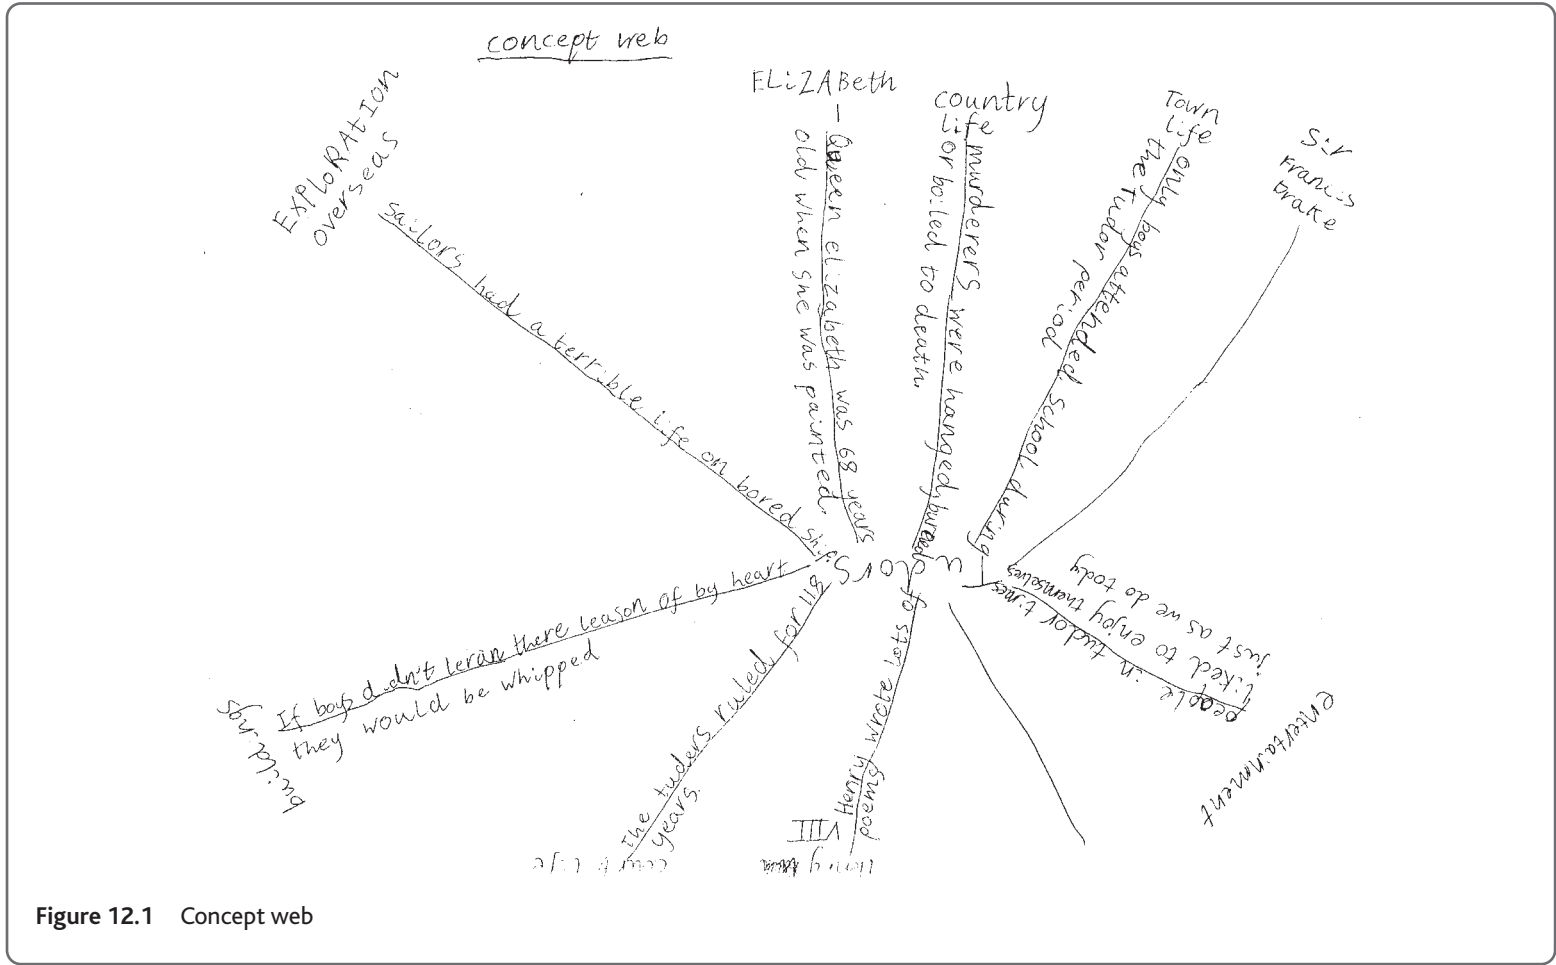 concept web
EXPloRAtION
overseas
sailors had a terrible life on bored ship.
ELiZABeth
Queen elizabeth was 68 years
old when she was painted.
country
life
murderers were hanged, bured
or boiled to death.
Town
life
only boys attended school during
the Tudor period
Sir
Francis
Drake
udors
people in tudor times
liked to enjoy themselves
just as we do today
entertainment
Henry wrote lots of
poems
VIII
The tuders ruled for 118
years.
court life
If boys didn't leran there leason of by heart
they would be whipped
buildings
Figure 12.1 Concept web